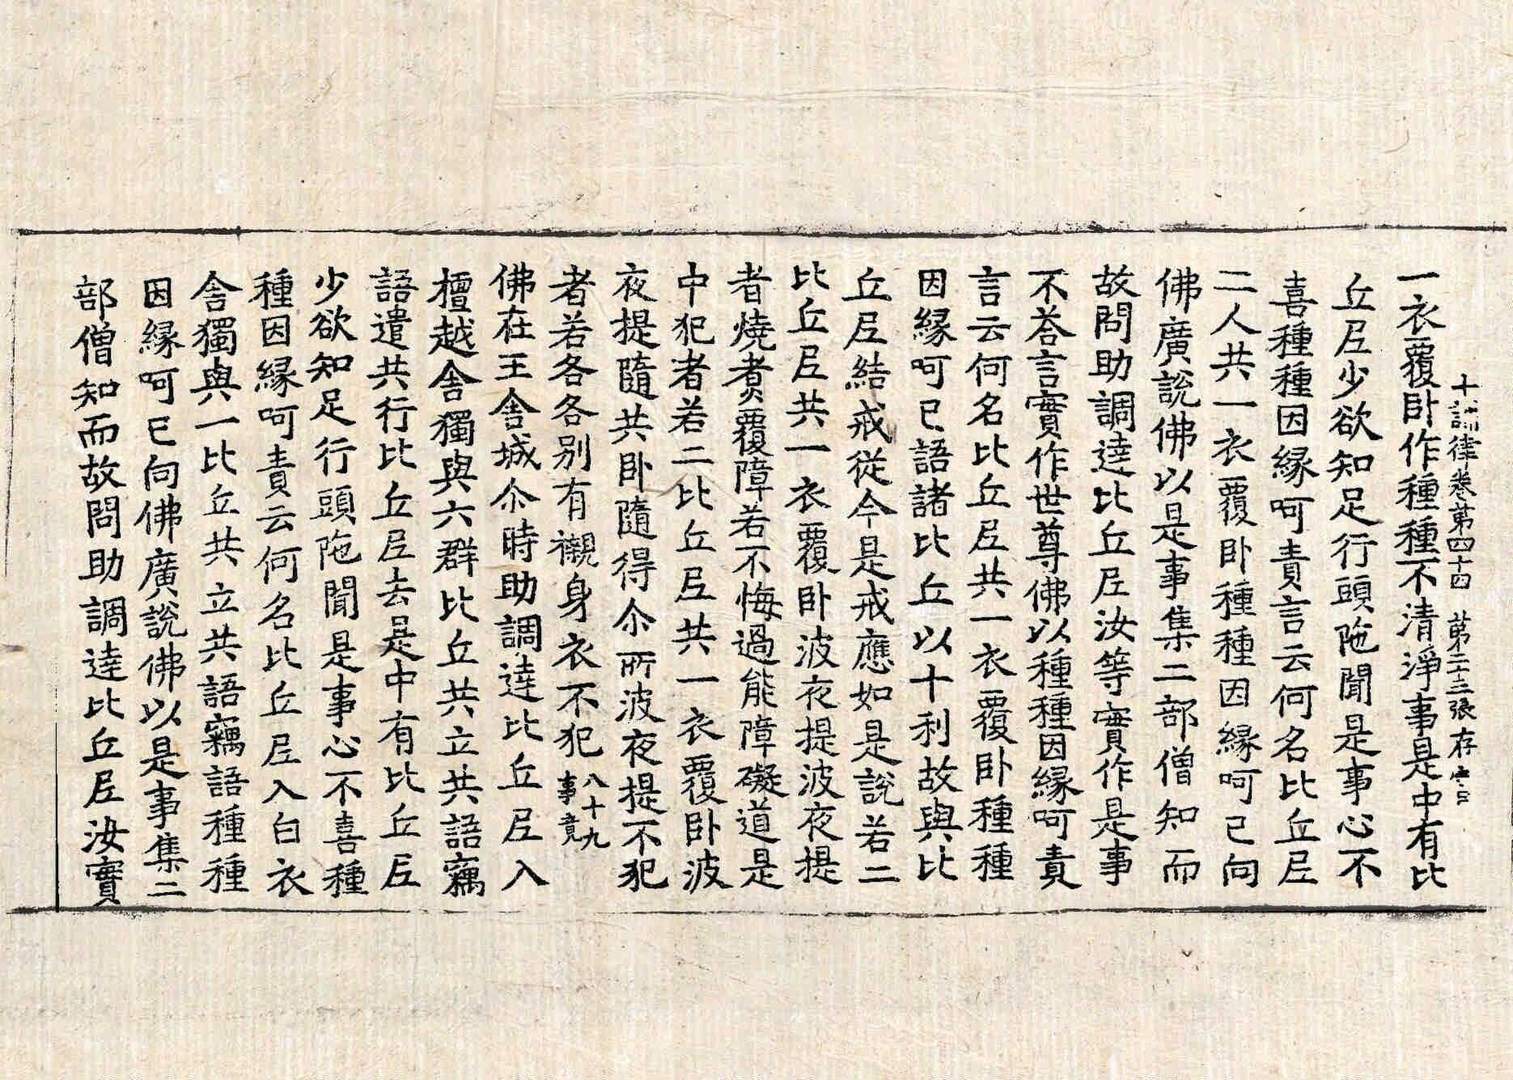 十誦律卷第四十四 第二十三張 存字号
一衣覆卧作種種不清淨事是中有比
丘尼少欲知足行頭陁聞是事心不
喜種種因緣呵責言云何名比丘尼
二人共一衣覆卧種種因緣呵已向
佛廣說佛以是事集二部僧知而
故問助調達比丘尼汝等實作是事
不荅言實作世尊佛以種種因緣呵責
言云何名比丘尼共一衣覆卧種種
因緣呵已語諸比丘以十利故與比
丘尼結戒從今是戒應如是說若二
比丘尼共一衣覆卧波夜提波夜提
者燒煑覆障若不悔過能障礙道是
中犯者若二比丘尼共一衣覆卧波
夜提隨共卧隨得尒所波夜提不犯
者若各各別有襯身衣不犯 八十九事竟
佛在王舍城尒時助調達比丘尼入
檀越舍獨與六群比丘共立共語竊
語遣共行比丘尼去是中有比丘尼
少欲知足行頭陁聞是事心不喜種
種因緣呵責云何名比丘尼入白衣
舍獨與一比丘共立共語竊語種種
因緣呵已向佛廣說佛以是事集二
部僧知而故問助調達比丘尼汝實